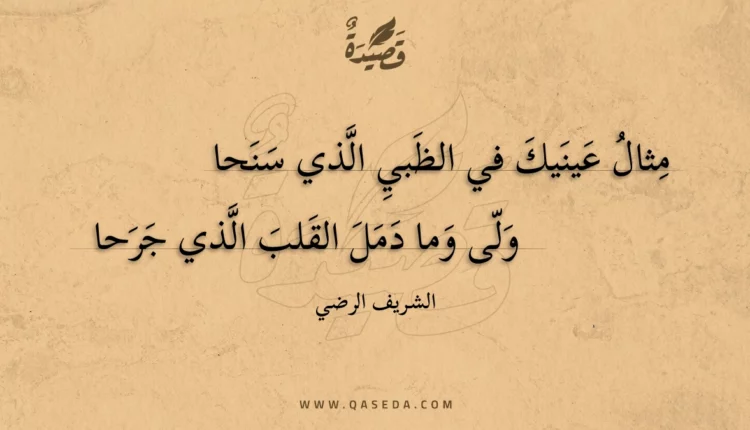 قَصِيدَةٌ
مِثالُ عَينَيكَ في الظَبيِ الَّذي سَنَحا
وَلّى وَما دَمَلَ القَلبَ الَّذي جَرَحا
الشريف الرضي
WWW.QASEDA.COM